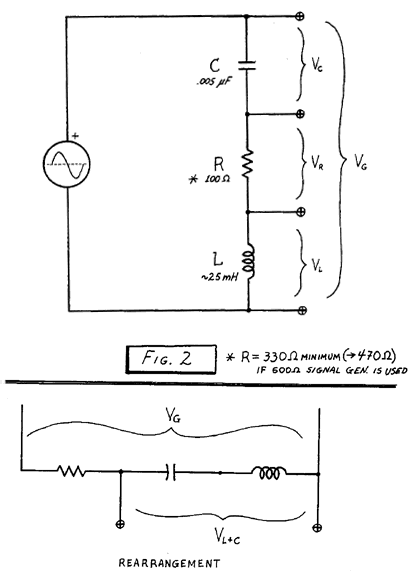 +
C
.005 µF
V_C
R
* 100Ω
V_R
V_G
L
~25mH
V_L
FIG. 2
* R = 330Ω MINIMUM (→470Ω)
IF 600Ω SIGNAL GEN. IS USED
V_G
V_L+C
REARRANGEMENT